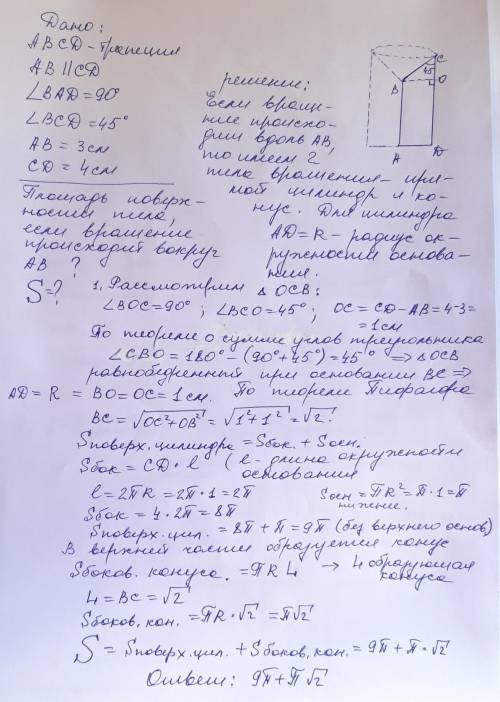 Дано:
ABCD - трапеция
AB || CD
∠BAD = 90°
∠BCD = 45°
AB = 3см
CD = 4см
Площадь поверх-
ности тела,
если вращение
происходит вокруг
AB ?
S = ?
решение:
Если враще-
ние происхо-
дит вдоль AB,
то имеем 2
тела вращения - пря-
мой цилиндр и ко-
нус. Для цилиндра
AD = R - радиус ок-
ружности основа-
ния.
C
45
B
O
A
D
1. Рассмотрим Δ OCB:
∠BOC = 90° ; ∠BCO = 45° ; OC = CD - AB = 4-3=
= 1см
По теореме о сумме углов треугольника
∠CBO = 180° - (90° + 45°) = 45° ⇒ Δ OCB
равнобедренный при основании BC ⇒
AD = R = BO = OC = 1см. По теореме Пифагора
BC = √OC² + OB² = √1² + 1² = √2.
Sповерх. цилиндра = Sбок. + Sосн.
Sбок = CD · l ( l - длина окружности
основания
l = 2πR = 2π · 1 = 2π Sосн = πR² = π · 1 = π
нижнее.
Sбок = 4 · 2π = 8π
Sповерх. цил. = 8π + π = 9π (без верхнего основ)
В верхней части образуется конус
Sбоков. конуса. = πR L → L образующая
конуса
L = BC = √2
Sбоков. кон. = πR · √2 = π√2
S = Sповерх. цил. + Sбоков. кон. = 9π + π · √2
Ответ: 9π + π√2